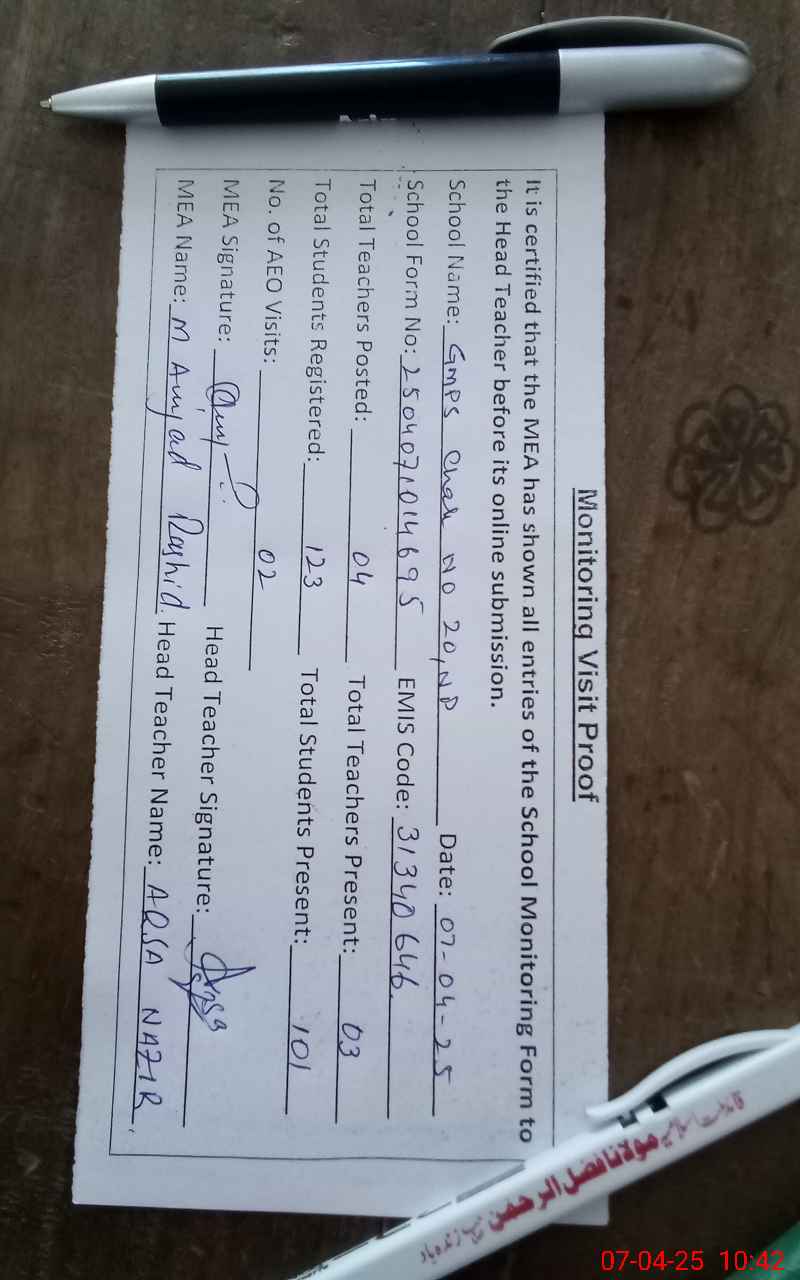 Monitoring Visit Proof
It is certified that the MEA has shown all entries of the School Monitoring Form to
the Head Teacher before its online submission.
School Name: GMPS Chak NO 20,ND Date: 07-04-25
School Form No: 250407,014695 EMIS Code: 31340646.
Total Teachers Posted: 04 Total Teachers Present: 03
Total Students Registered: 123 Total Students Present: 101
No. of AEO Visits: 02
MEA Signature: Head Teacher Signature:
MEA Name: M Amjad Rashid. Head Teacher Name: AQSA NAZIR
مولانا فضل الرحمن
07-04-25 10:42